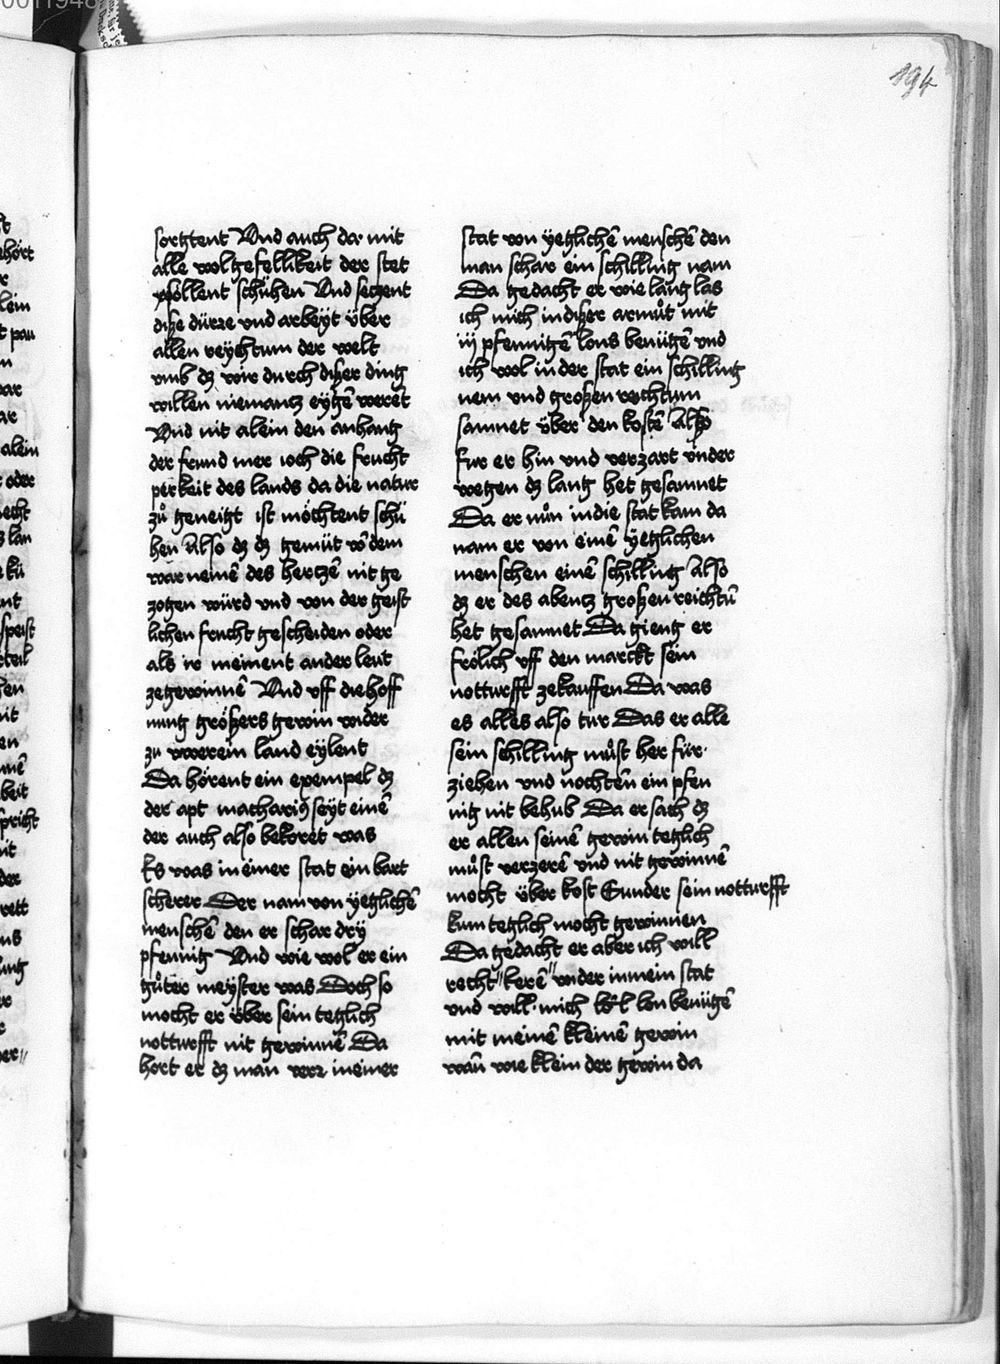 194
sorgtent Vnd auch da mit
alle wolgefellikeit der stet
schühen Vnd setzent
dise dürre vnd arbeyt über
allen reychtum der welt
vmb dz wir durch diser ding
willen niemantz eygē werēt
Vnd nit alein den anhang
der frund mer ioch die frucht
perkeit des lands da die natur
zů geneigt ist möchtent schü
hen Also dz dz gemüt vō dem
war nemē des hertzē nit ge
zogen würd vnd von der geist
lichen frucht gescheiden oder
als ir meinent ander leut
zegewinnē Vnd vff die hoff
nung grössers gewin wider
zu vwerem land eylent
Da hörent ein exempel dz
der apt machariꝰ seyt einē
der auch also bekoret was
Es was in einer stat ein bart
scherer Der nam von yeglichē
menschē den er schar dry
pfennig Vnd wie wol er ein
gůter meyster was Doch so
mocht er über sein teglich
notturfft nit gewinnē Da
hort er dz man verr in einer
stat von yeglichē menschē den
man schar ein schilling nam
Da gedacht er wie lang las
ich mich in diser armůt mit
iij pfennigē lons benügē vnd
ich wol in der stat ein schilling
nem vnd grossen rechtum
samnet über den kostē Also
fur er hin vnd verzart vnder
wegen dz lang het gesamnet
Da er nůn in die stat kam da
nam er von einē yeglichen
menschen einē schilling Also
dz er des abentz grossen reichtū
het gesamnet Da gieng er
frölich vff den marckt sein
notturfft zekauffen Da was
es alles also tur Das er alle
sein schilling můst her für
ziehen vnd nochten ein pfen
nig nit behub Da er sach dz
er allen seinē gewin teglich
můst verzerē vnd nit gewinnē
mocht über kost Sunder sein notturfft
kum teglich mocht gewinnen
Da gedacht er aber ich will
recht kerē wider in mein stat
vnd will mich lon benügē
mit meinē kleinē gewin
wañ wie klein der gewin da